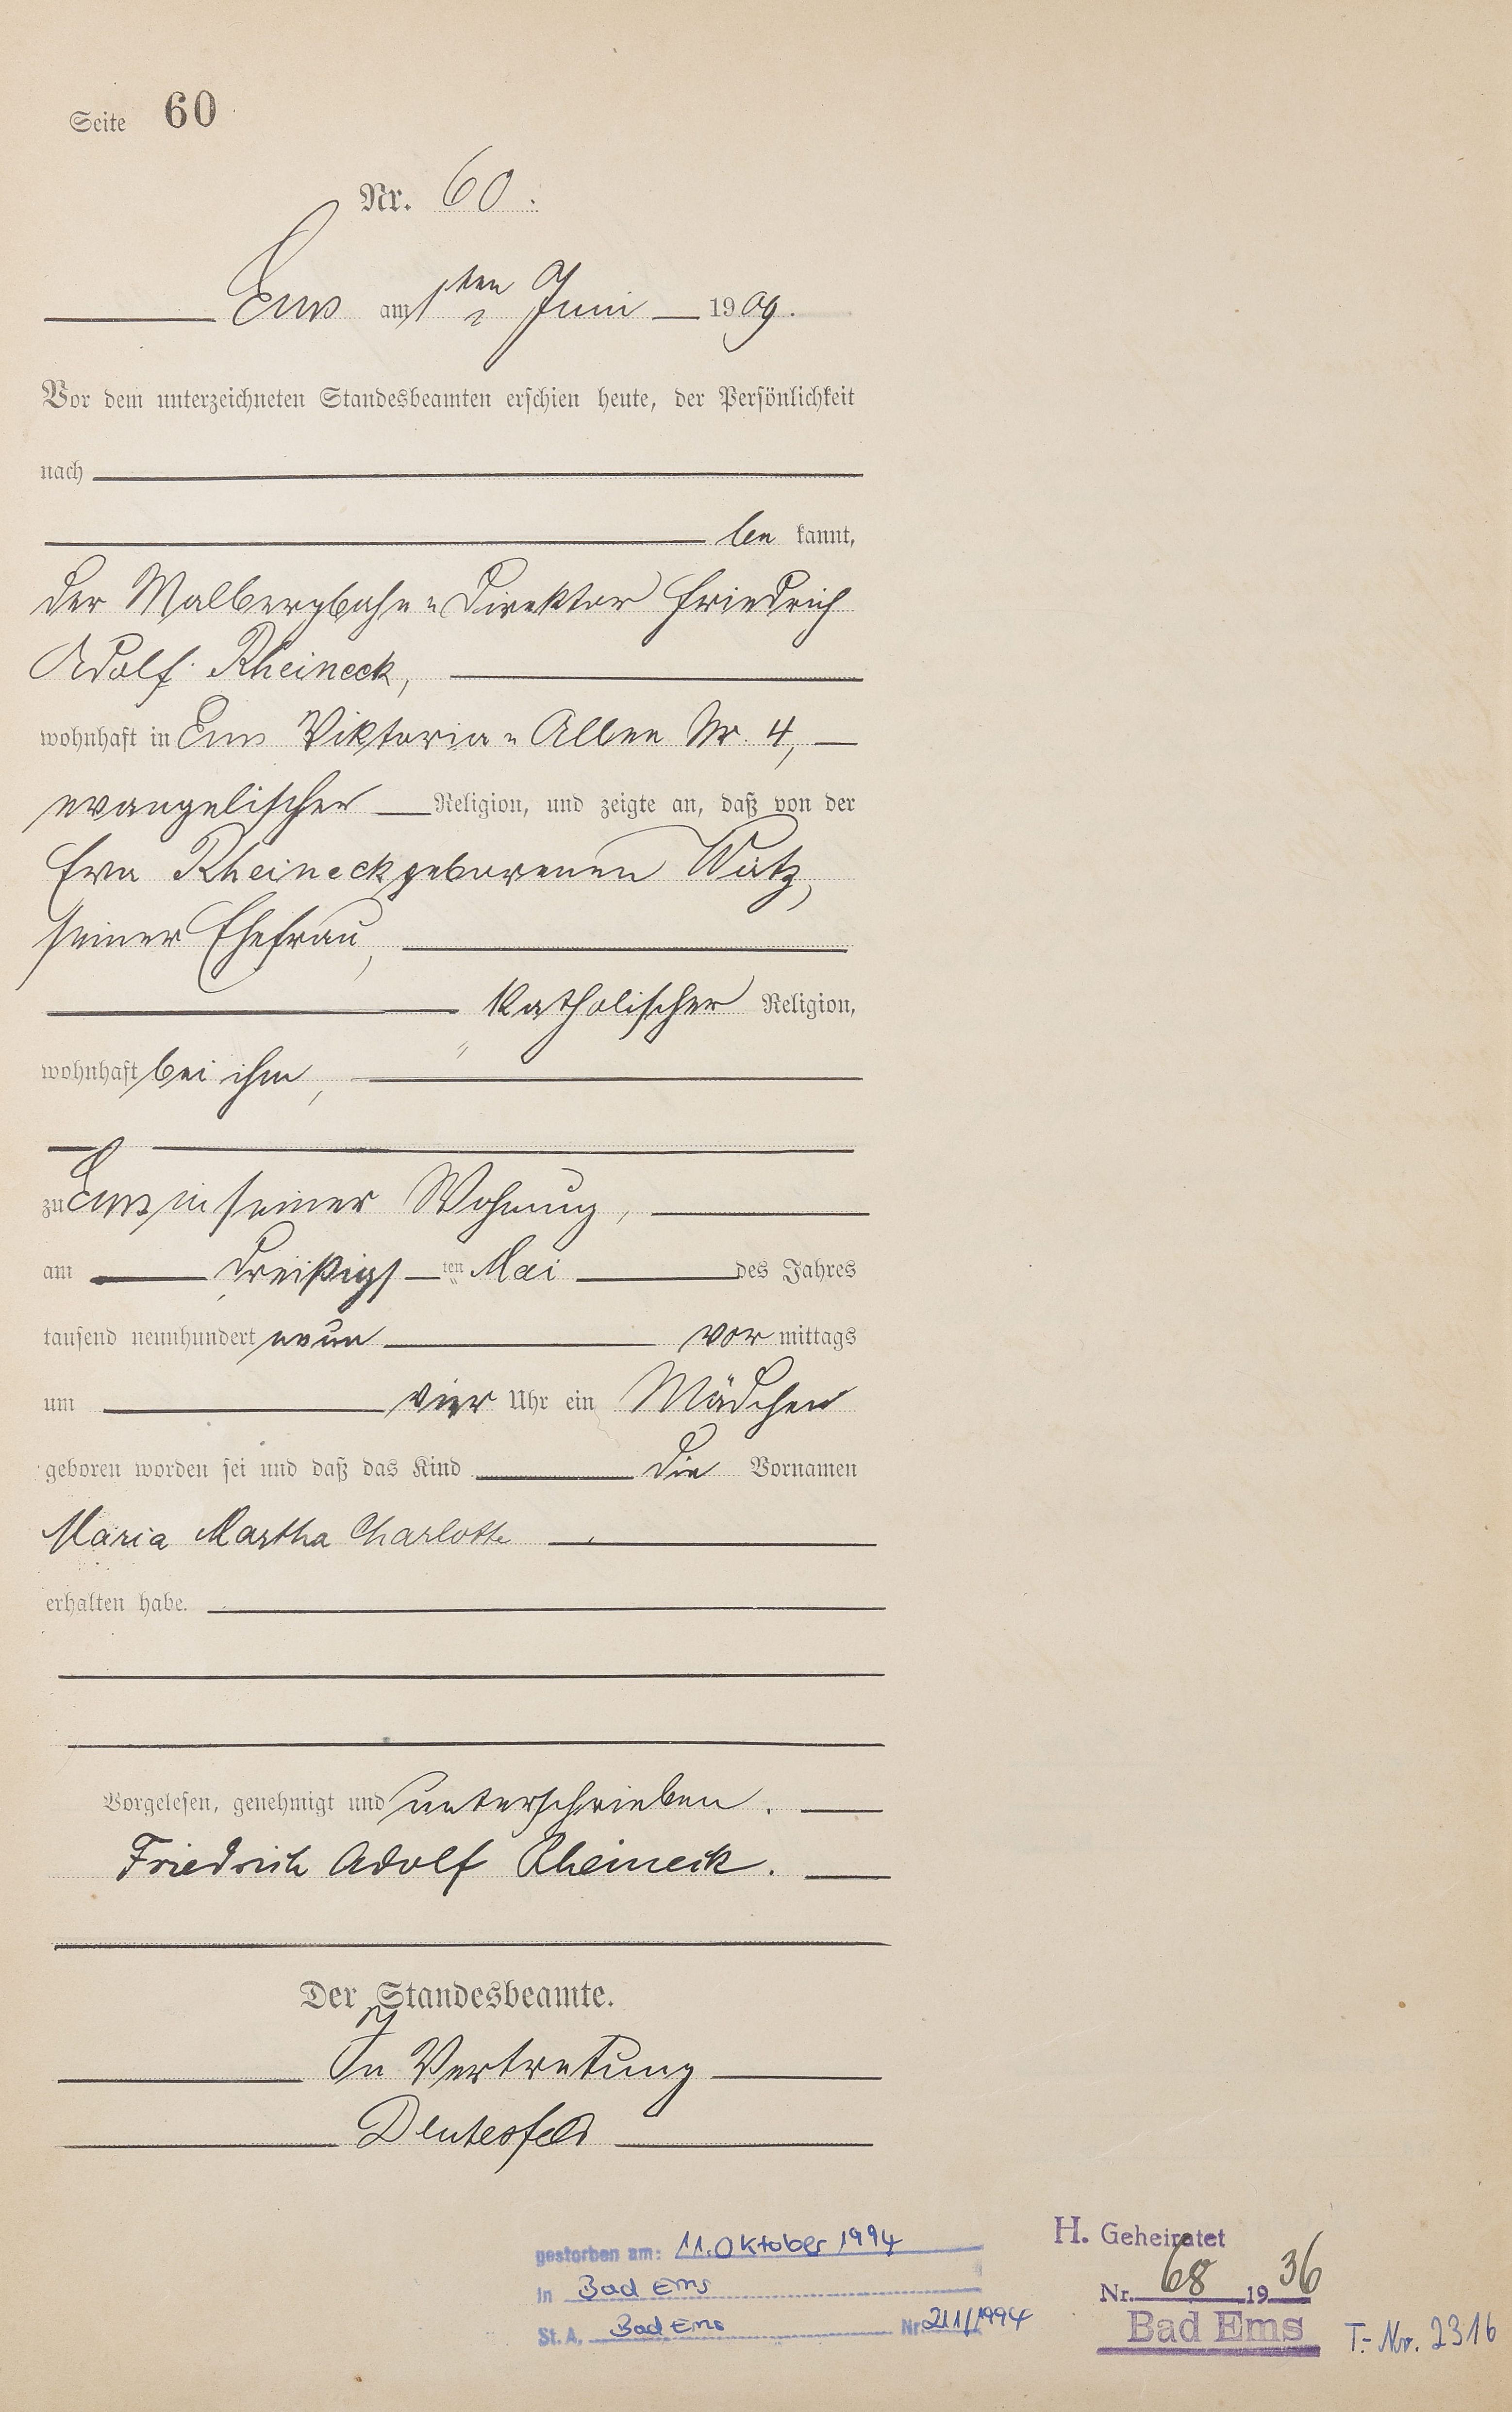 Seite 60
Nr. 60.
Ems am 1ten Juni 1909.
Vor dem unterzeichneten Standesbeamten erschien heute, der Persönlichkeit
nach
be kannt,
der Malbergbahn-Direktor Friedrich
Adolf Rheineck,
wohnhaft in Ems Viktoria-Allee Nr. 4,
evangelischer Religion, und zeigte an, daß von der
Eva Rheineck geborenen Watz,
seiner Ehefrau,
katholischer Religion,
wohnhaft bei ihm,
zu Ems in seiner Wohnung,
am dreißigsten Mai des Jahres
tausend neunhundert neun vor mittags
um vier Uhr ein Mädchen
geboren worden sei und daß das Kind die Vornamen
Maria Martha Charlotte
erhalten habe.
Vorgelesen, genehmigt und unterschrieben.
Friedrich Adolf Rheineck.
Der Standesbeamte.
In Vertretung
gestorben am: 11. Oktober 1994
in Bad Ems
St. A. Bad Ems Nr 211/1994
H. Geheiratet
Nr. 68 1936
Bad Ems
T.-Nr. 2316